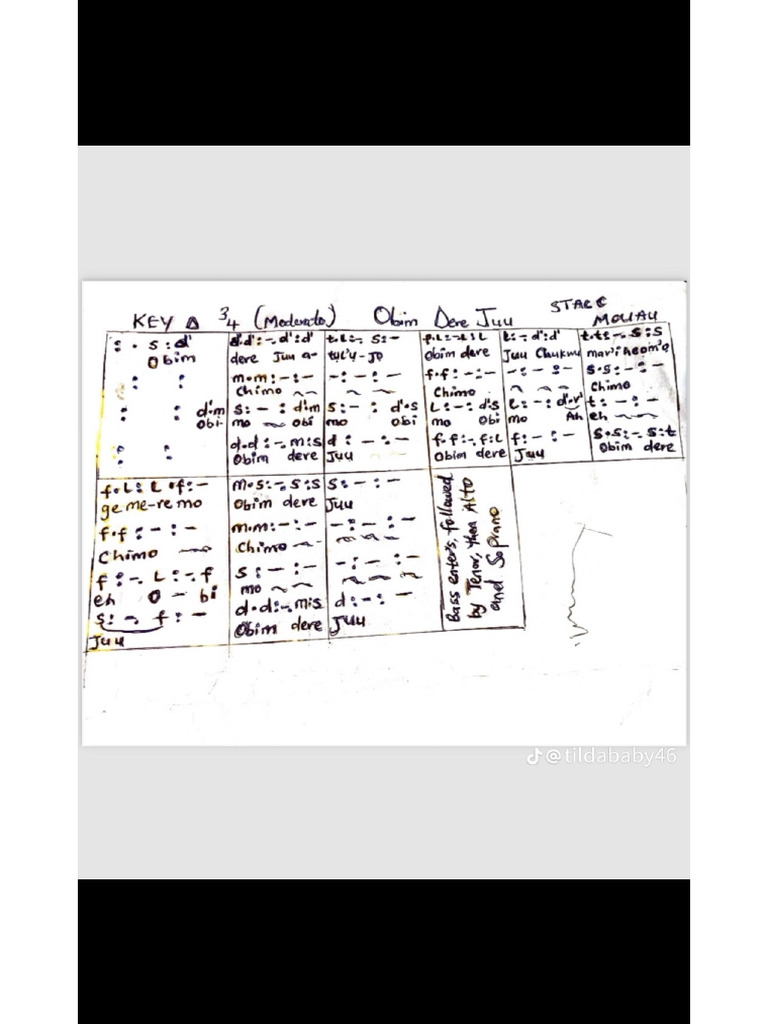 KEY D 3/4 (Moderato) Obim Dere Juu STACC MOUAU
: . s : d' | d'.d' : -. d' : d' | t.l :- s : - | f.l : - l : l | l : -. d' : d' | t.t : -. s : s
Obim | dere Juu a- | Jo | Obim dere | Juu Chukwu
: : | m.m : - : - | - : - : - | f.f : - : - | - : - : - | s.s : - : -
Chimo | Chimo | Chimo
: : d.m | s : - : d.m | s : - : d'.s | l : - : d.s | l : - : d'.r' | t : - : -
Obi- | mo Obi | mo Obi | mo Obi | mo Ah | eh
: : | d.d : -. m : s | d : - : - | f.f : -. f : l | f : - : - | s.s : -. s : t
Obim dere | Juu | Obim dere | Juu | Obim dere
f.l : l . f : - | m.s : -. s : s | s : - : -
ge me-re mo | Obim dere | Juu
f.f : - : - | m.m : - : - | - : - : -
Chimo | Chimo
f : -. l : -. f | s : - : - | - : - : -
eh O - bi | mo
s : -. f : - | d.d : -. m : s | d : - : -
Juu | Obim dere | Juu
Bass enters, followed
by Tenor, then Alto
and Soprano
@tildababy46